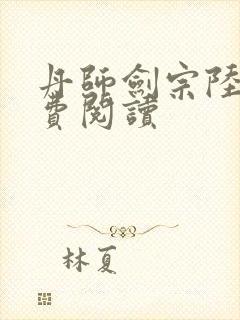 丹師劍宗陸
費閱讀
林夏